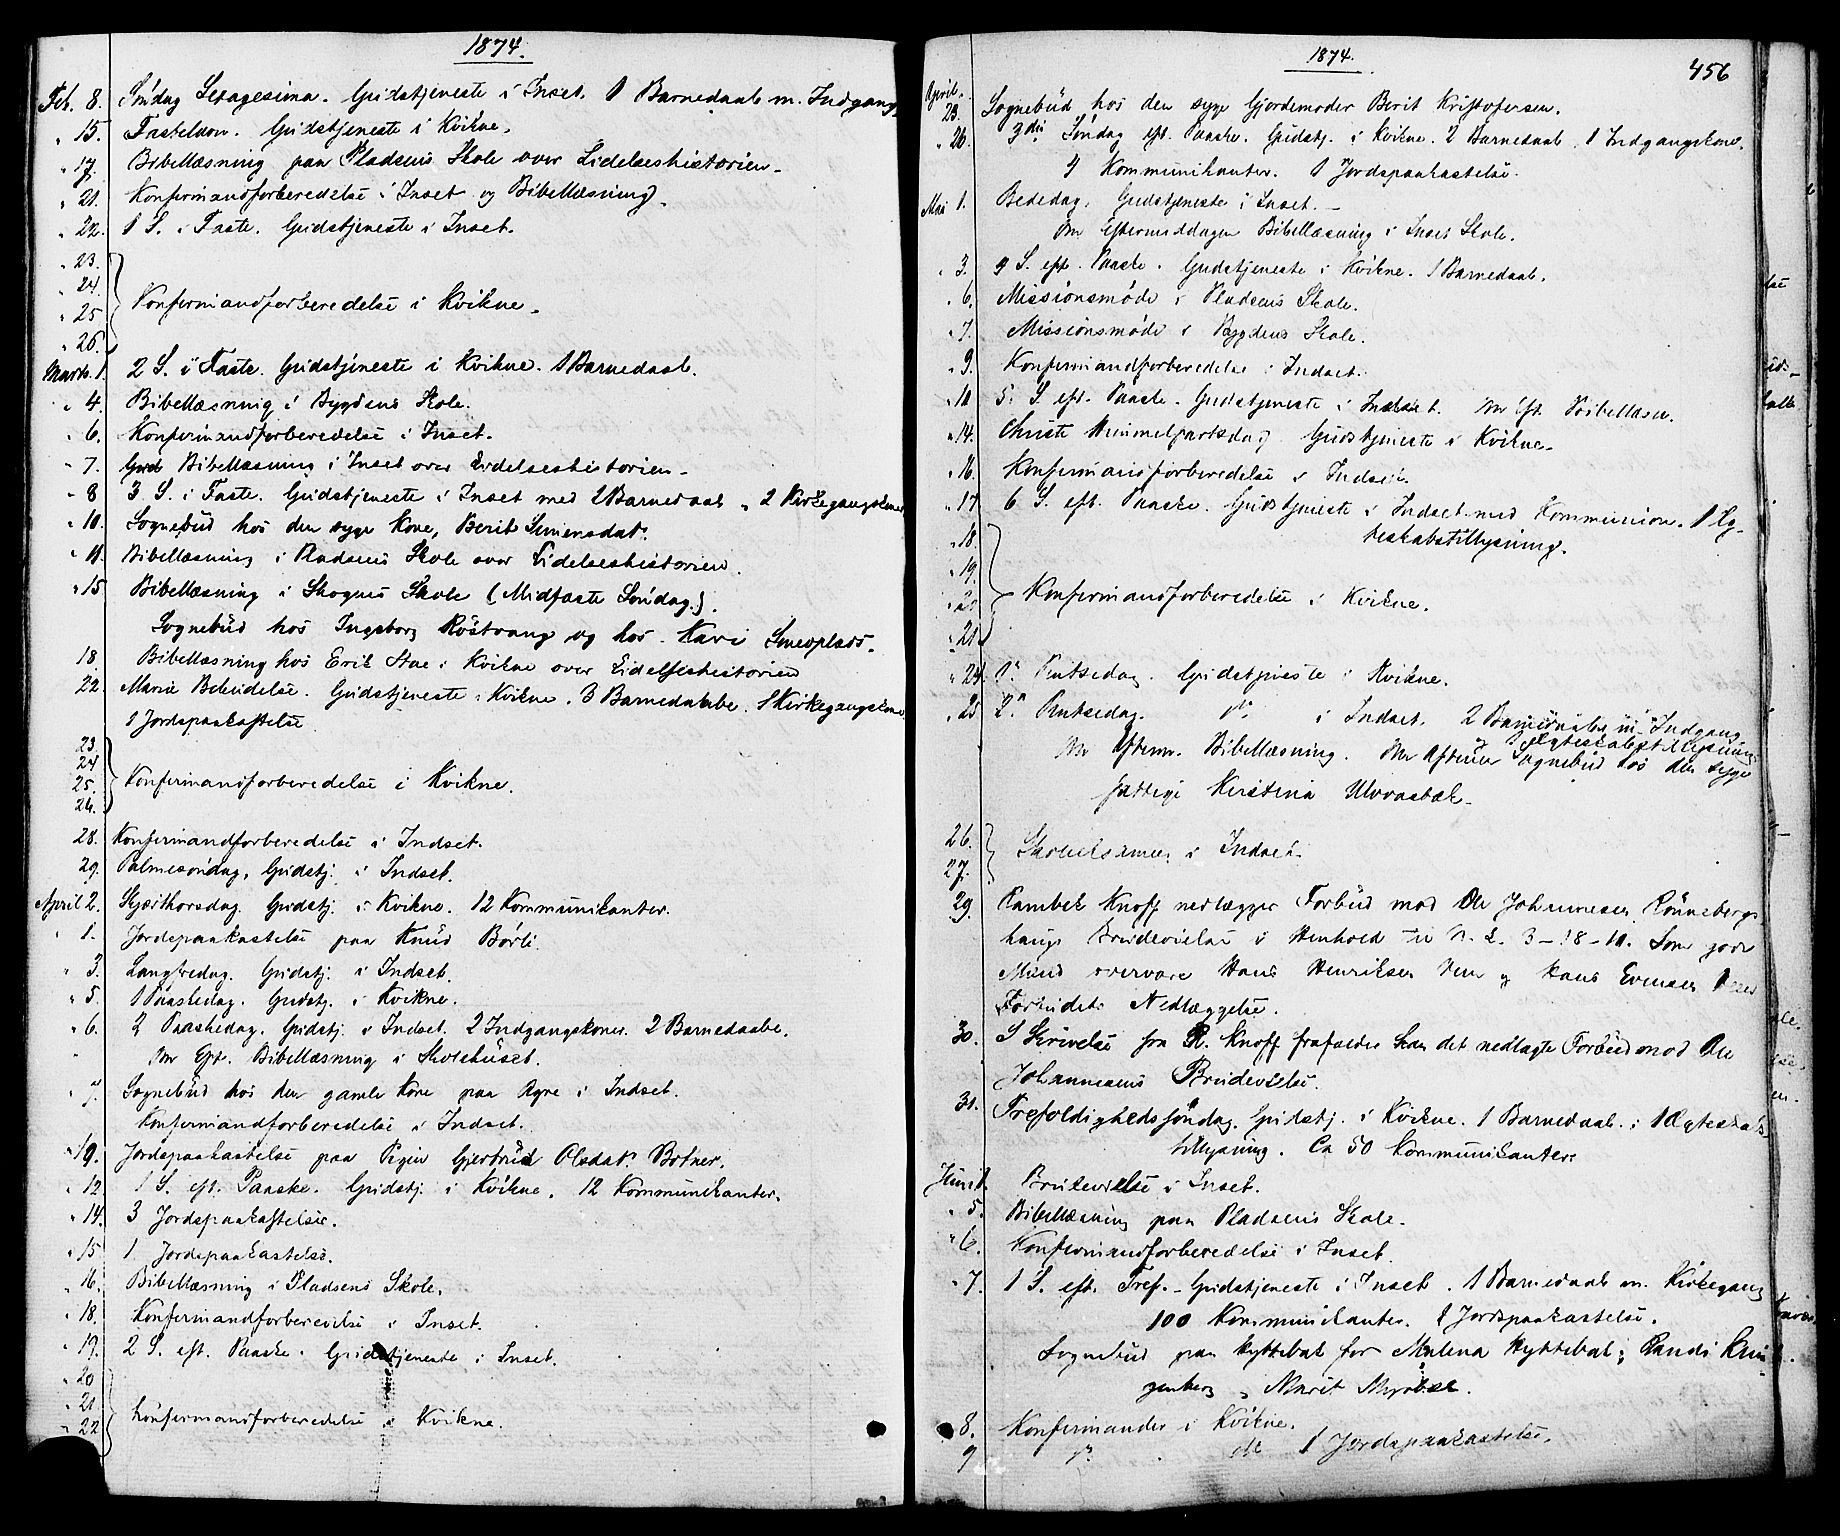 1874.
Feb. 8. Søndag Sexagesima. Gudstjeneste i Inset. 1 Barnedaab m. Indgang.
" 15. Fastelavn. Gudstjeneste i Kvikne.
" 17. Bibellæsning paa Pladsens Skole over Lidelseshistorien.
" 21. Konfirmandforberedelse i Inset og Bibellæsning.
" 22. 1 S. i Faste. Gudstjeneste i Inset.
" 23.
" 24.
" 25 Konfirmandforberedelse i Kvikne.
" 26.
Marts. 1. 2 S. i Faste. Gudstjeneste i Kvikne. 1 Barnedaab.
" 4. Bibellæsning i Bygdens Skole.
" 6. Konfirmandforberedelse i Inset.
" 7. Bibellæsning i Inset over Lidelseshistorien.
" 8 3 S. i Faste. Gudstjeneste i Inset med 2 Barnedaab " 2 Kirkegangskoner
" 10. Sognebud hos den syge Kone, Berit Simensdatr.
" 11. Bibellæsning i Pladsens Skole over Lidelseshistorien.
" 15 Bibellæsning i Skognes Skole (Midfaste Søndag.).
Sognebud hos Ingeborg Røstvang og hos Kari
18. Bibellæsning hos Erik Stue i Kvikne over Lidelseshistorien
22. Mariæ Bebudelse. Gudstjeneste i Kvikne. 3 Barnedaabe. 1 Kirkegangskone
1 Jordspaakastelse
23.
24
25. Konfirmandforberedelse i Kvikne.
26.
28. Konfirmandforberedelse i Indset.
29. Palmesøndag. Gudstj. i Indset.
April 2. Skjærthorsdag. Gudstj. i Kvikne. 12 Kommunikanter.
" 1. Jordspaakastelse paa Knud Børli.
" 3. Langfredag. Gudstj. i Indset.
" 5. 1 Paaskedag. Gudstj. i Kvikne.
" 6. 2 Paaskedag. Gudstj. i Indset. 2 Indgangskoner. 2 Barnedaabe.
Om Eft. Bibellæsning i Skolehuset.
" 7. Sognebud hos den gamle Kone paa Agre i Indset.
Konfirmandforberedelse i Indset.
" 10. Jordspaakastelse paa Pigen Gjertrud Olsdatr. Botner.
" 12 1 S. eft. Paaske. Gudstj. i Kvikne. 12 Kommunikanter.
" 14. 3 Jordspaakastelser.
" 15 1. Jordspaakastelse.
" 16. Bibellæsning i Pladsens Skole.
" 18. Konfirmandforberedelse i Inset.
" 19. 2 S. eft. Paaske. Gudstjeneste i Inset.
" 20
" 21. Konfirmandforberedelse i Kvikne.
" 22
1874.
456
April.
23. Sognebud hos den syge Gjordemoder Berit Kristofersen.
" 26. 3die Søndag eft. Paaske. Gudstj. i Kvikne. 2 Barnedaab. 1 Indgangskone.
4 Kommunikanter. 1 Jordspaakastelse.
Mai 1. Bededag. Gudstjeneste i Inset.
Om Eftermiddagen Bibellæsning i Inset Skole.
" 3. 4 S. eft. Paaske. Gudstjeneste i Kvikne. 1 Barnedaab.
" 6. Missionsmøde i Pladsens Skole.
" 7. Missionsmøde i Bygdens Skole.
" 9. Konfirmandforberedelse i Indset.
" 10 5. S. eft. Paaske. Gudstjeneste i Indset. Om Eft. Bibellæsn.
" 14. Christi Himmelfartsdag Gudstjeneste i Kvikne.
" 16. Konfirmandforberedelse i Indset.
" 17 6 S. eft. Paaske. Gudstjeneste i Indset med Kommunion. 1 Æg-
teskabstillysning.
" 18.
" 19.
" 20 Konfirmandforberedelse i Kvikne.
" 21.
" 24. 1. Pintsedag. Gudstjeneste i Kvikne.
" 25 2. Pintsedag. do i Indset. 2 Barnedaabe m. Indgang
Ægteskabstillysning
Om Efterm. Bibellæsning. Om Aftenen Sognebud hos den syge
fattige Kirstina
26.
27. Skoleexamen i Indset.
29. Knoff nedlægger Forbud mod Ole Johannesen Rønnebergs
haugs Brudevielse i Henhold til N. L. 3-18-11. Som gode
Mænd overvare Hans Henriksen og Hans Evensen
Forbudets Nedlæggelse.
30. I Skrivelse fra R. Knoff frafalder han det nedlagte Forbud mod Ole
Johannesens Brudevielse.
31. Trefoldighedssøndag. Gudstj. i Kvikne. 1 Barnedaab. 1 Ægteskabs-
tillysning. Ca 50 Kommunikanter.
Juni 1. Brudevielse i Inset.
" 5. Bibellæsning paa Pladsens Skole.
" 6. Konfirmandforberedelse i Inset.
" 7. 1 S. eft. Tref. Gudstjeneste i Inset. 1 Barnedaab m. Kirkegang
100 Kommunikanter. 1 Jordspaakastelse.
Sognebud paa Hyttebak for Malena Hyttebak; Randi
" Marit Myrbak.
" 8. Konfirmander i Kvikne.
9 do do 1 Jordspaakastelse.